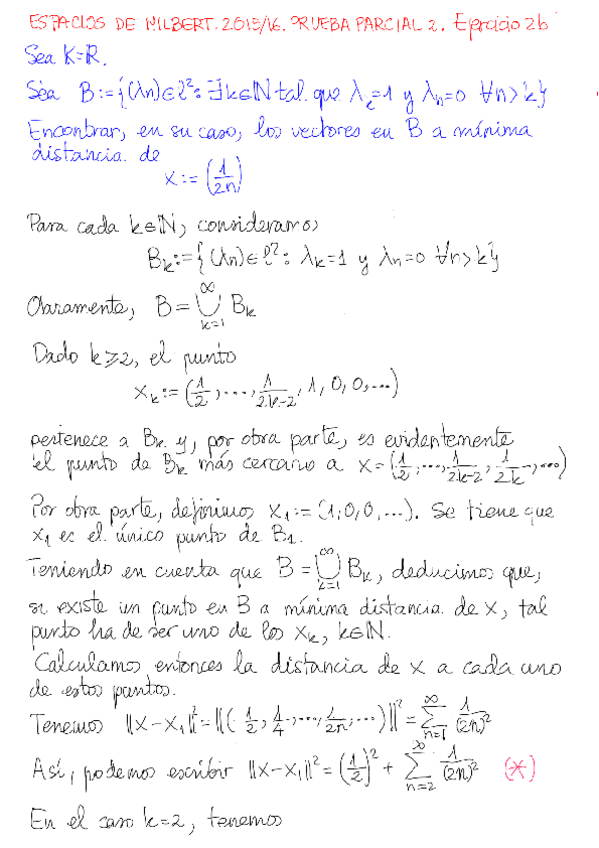 ESPACIOS DE HILBERT. 2015/16. PRUEBA PARCIAL 2. Ejercicio 2b
Sea K=ℝ.
Sea B:={(λn)∈ℓ²: ∃k∈ℕ tal que λ_k=1 y λn=0 ∀n>k}
Encontrar, en su caso, los vectores en B a mínima
distancia de
x:=(1/2n)
Para cada k∈ℕ, consideramos
B_k:={(λn)∈ℓ²: λ_k=1 y λn=0 ∀n>k}
Claramente, B=⋃_{k=1}^∞ B_k
Dado k≥2, el punto
x_k:=(1/2,...,1/2k-2,1,0,0,...)
pertenece a B_k y, por otra parte, es evidentemente
el punto de B_k más cercano a x=(1/2,...,1/2k-2,1/2k,...)
Por otra parte, definimos x₁:=(1,0,0,...). Se tiene que
x₁ es el único punto de B₁.
Teniendo en cuenta que B=⋃_{k=1}^∞ B_k, deducimos que,
si existe un punto en B a mínima distancia de x, tal
punto ha de ser uno de los x_k, k∈ℕ.
Calculamos entonces la distancia de x a cada uno
de estos puntos.
Tenemos ||x-x₁||²=||(-1/2,1/4,...,1/2n,...)||²=∑_{n=1}^∞ 1/(2n)²
Así, podemos escribir ||x-x₁||²=(1/2)²+∑_{n=2}^∞ 1/(2n)² (*)
En el caso k=2, tenemos